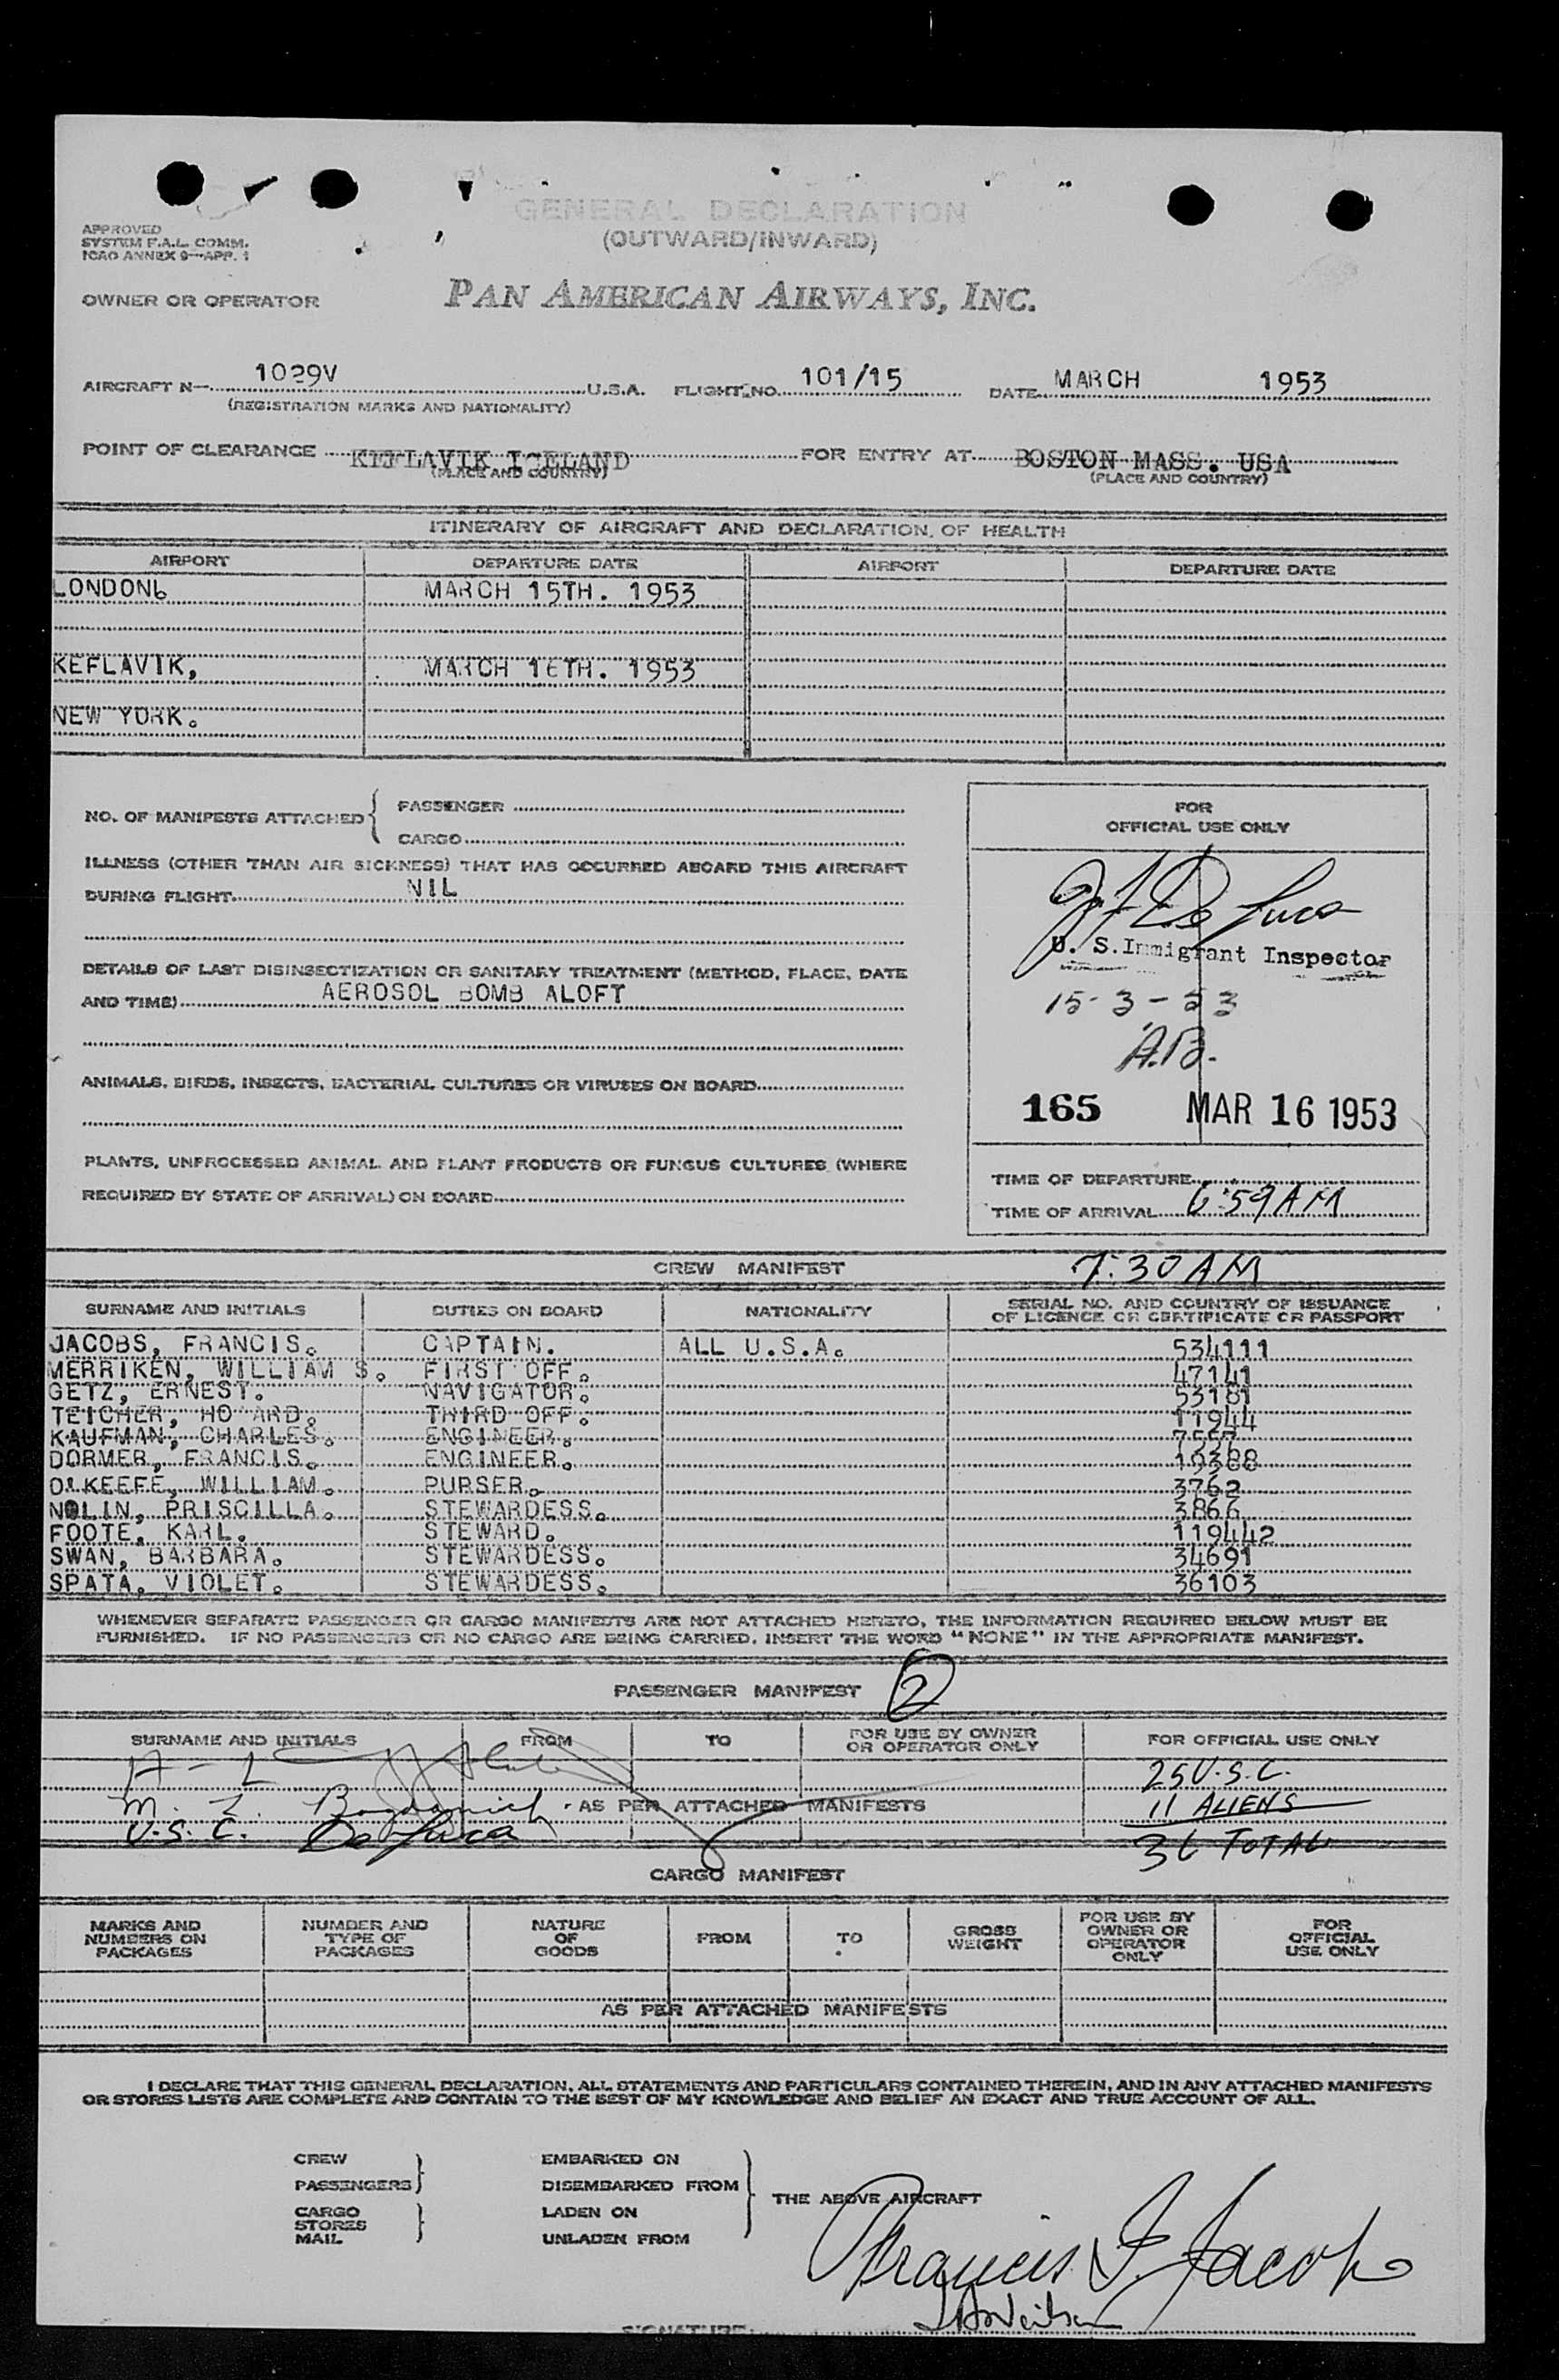 GENERAL DECLARATION
(OUTWARD/INWARD)
APPROVED
SYSTEM F.A.L. COMM.
ICAO ANNEX 9—APP. 1
OWNER OR OPERATOR PAN AMERICAN AIRWAYS, INC.
AIRCRAFT N— 1029V U.S.A. FLIGHT NO. 101/15 DATE MARCH 1953
(REGISTRATION MARKS AND NATIONALITY)
POINT OF CLEARANCE KEFLAVIK ICELAND FOR ENTRY AT BOSTON MASS. USA
(PLACE AND COUNTRY) (PLACE AND COUNTRY)
ITINERARY OF AIRCRAFT AND DECLARATION OF HEALTH
AIRPORT DEPARTURE DATE AIRPORT DEPARTURE DATE
LONDON MARCH 15TH. 1953
KEFLAVIK, MARCH 16TH. 1953
NEW YORK.
NO. OF MANIFESTS ATTACHED { PASSENGER
CARGO
ILLNESS (OTHER THAN AIR SICKNESS) THAT HAS OCCURRED ABOARD THIS AIRCRAFT
DURING FLIGHT NIL
DETAILS OF LAST DISINSECTIZATION OR SANITARY TREATMENT (METHOD, PLACE, DATE
AND TIME) AEROSOL BOMB ALOFT
ANIMALS, BIRDS, INSECTS, BACTERIAL CULTURES OR VIRUSES ON BOARD
PLANTS, UNPROCESSED ANIMAL AND PLANT PRODUCTS OR FUNGUS CULTURES (WHERE
REQUIRED BY STATE OF ARRIVAL) ON BOARD
FOR
OFFICIAL USE ONLY
De Luca
U. S. Immigrant Inspector
15-3-53
A.B.
165 MAR 16 1953
TIME OF DEPARTURE
TIME OF ARRIVAL 6:59 AM
CREW MANIFEST 7:30 AM
SURNAME AND INITIALS DUTIES ON BOARD NATIONALITY SERIAL NO. AND COUNTRY OF ISSUANCE
OF LICENCE OR CERTIFICATE OR PASSPORT
JACOBS, FRANCIS. CAPTAIN. ALL U.S.A. 534111
MERRIKEN, WILLIAM S. FIRST OFF. 47141
GETZ, ERNEST. NAVIGATOR. 53181
TEICHER, HO ARD. THIRD OFF. 11944
KAUFMAN, CHARLES. ENGINEER.
DORMER, FRANCIS. ENGINEER. 19388
O'KEEFE, WILLIAM. PURSER. 3762
NOLIN, PRISCILLA. STEWARDESS. 3866
FOOTE, KARL. STEWARD. 119442
SWAN, BARBARA. STEWARDESS. 34691
SPATA, VIOLET. STEWARDESS. 36103
WHENEVER SEPARATE PASSENGER OR CARGO MANIFESTS ARE NOT ATTACHED HERETO, THE INFORMATION REQUIRED BELOW MUST BE
FURNISHED. IF NO PASSENGERS OR NO CARGO ARE BEING CARRIED, INSERT THE WORD "NONE" IN THE APPROPRIATE MANIFEST.
PASSENGER MANIFEST 2
SURNAME AND INITIALS FROM TO FOR USE BY OWNER
OR OPERATOR ONLY FOR OFFICIAL USE ONLY
25 U.S.C.
M. L. Bogdanich AS PER ATTACHED MANIFESTS 11 ALIENS
U.S.C. De Luca 36 TOTAL
CARGO MANIFEST
MARKS AND
NUMBERS ON
PACKAGES
NUMBER AND
TYPE OF
PACKAGES
NATURE
OF
GOODS
FROM
TO
GROSS
WEIGHT
FOR USE BY
OWNER OR
OPERATOR
ONLY
FOR
OFFICIAL
USE ONLY
AS PER ATTACHED MANIFESTS
I DECLARE THAT THIS GENERAL DECLARATION, ALL STATEMENTS AND PARTICULARS CONTAINED THEREIN, AND IN ANY ATTACHED MANIFESTS
OR STORES LISTS ARE COMPLETE AND CONTAIN TO THE BEST OF MY KNOWLEDGE AND BELIEF AN EXACT AND TRUE ACCOUNT OF ALL.
CREW EMBARKED ON
PASSENGERS DISEMBARKED FROM
THE ABOVE AIRCRAFT
CARGO LADEN ON
STORES
MAIL UNLADEN FROM
Francis I. Jacobs
SIGNATURE